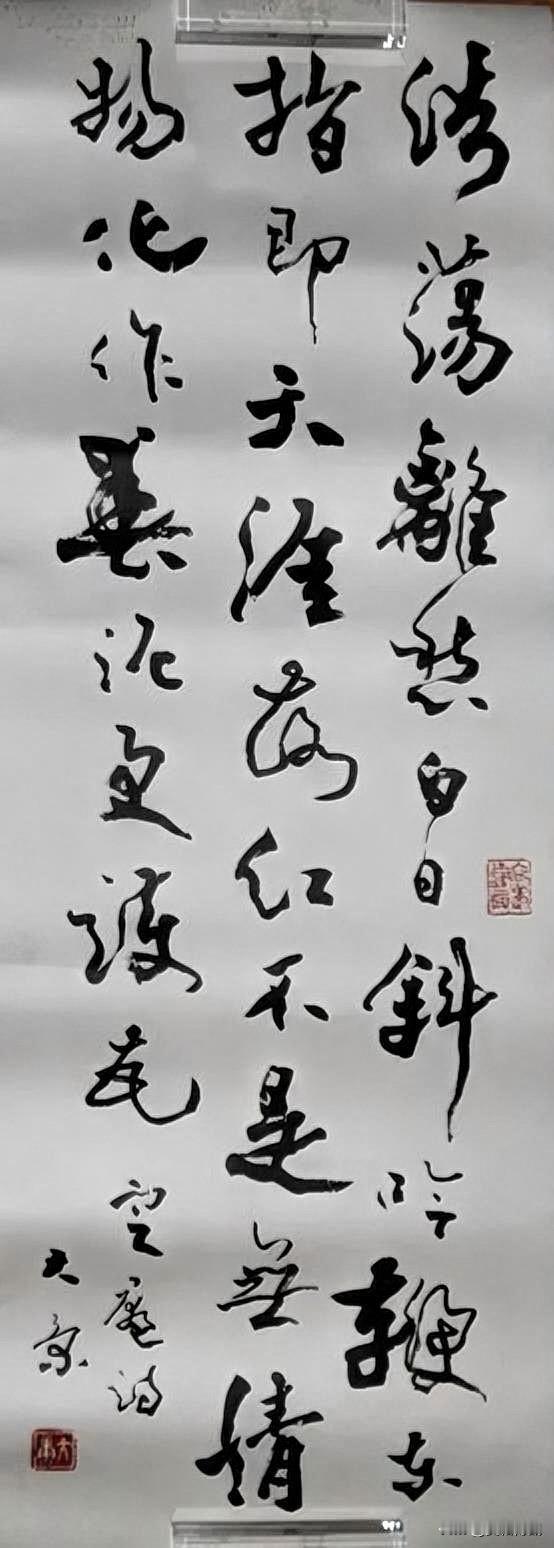 浩蕩離愁白日斜吟鞭東
指即天涯落紅不是無情
物化作春泥更護花
定盦詩